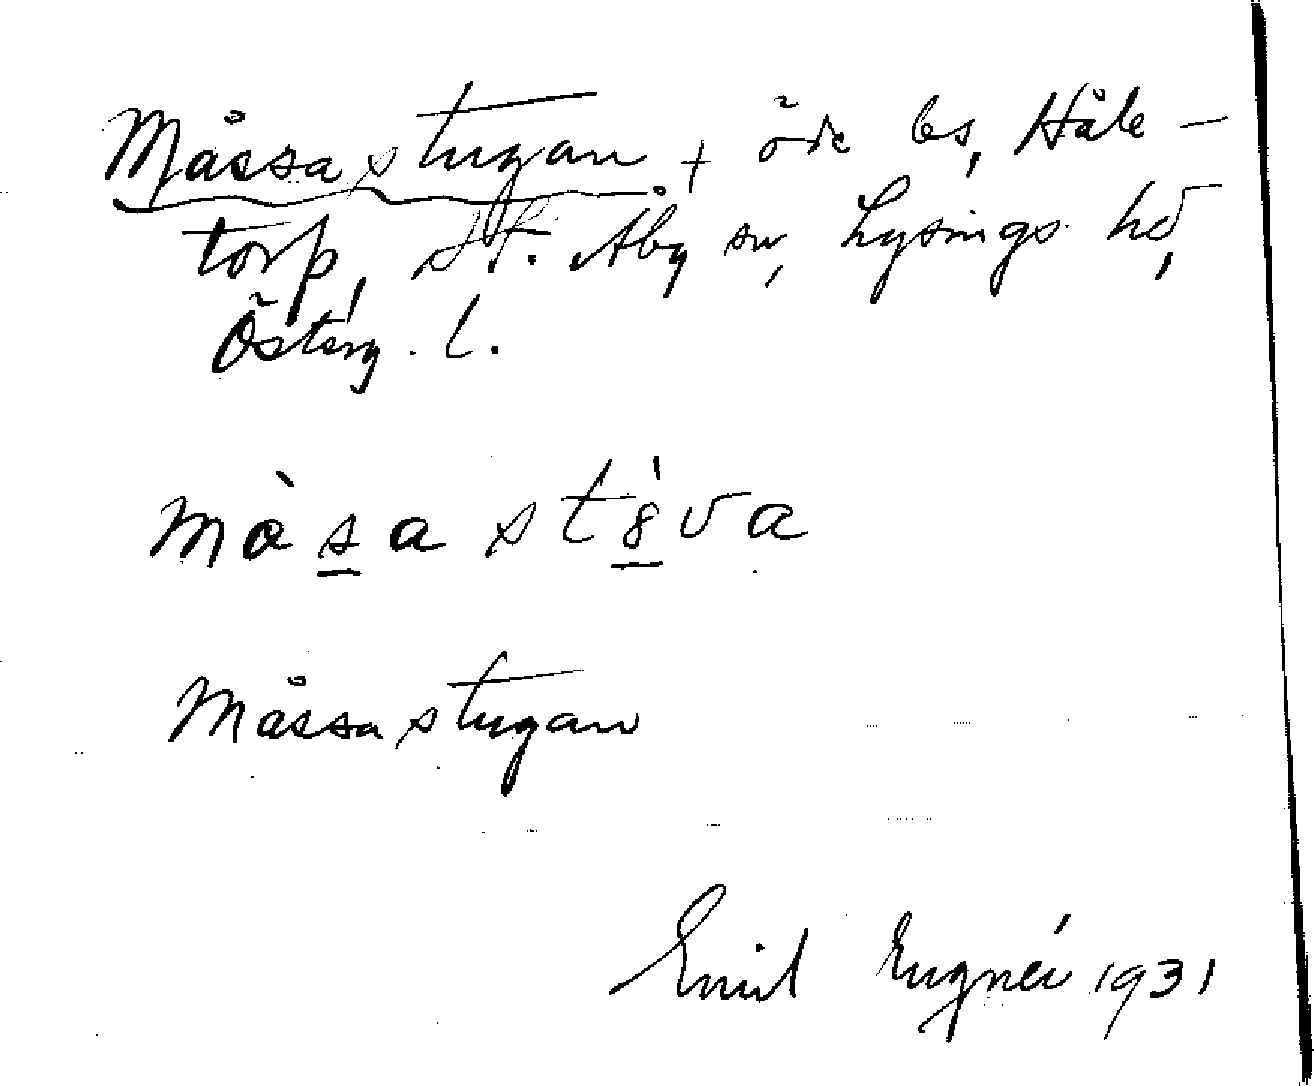 Måssastugan + öde bs, Håle-
torp, St. Åby sn, Lysings hd,
Österg. l.
mòsa st8́va
Måssastugan
Emil Eugnéi 1931